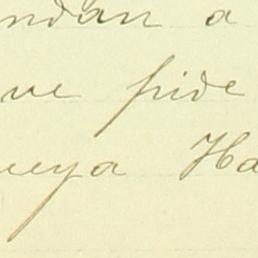 ndan a
ve pide
ueya Ha